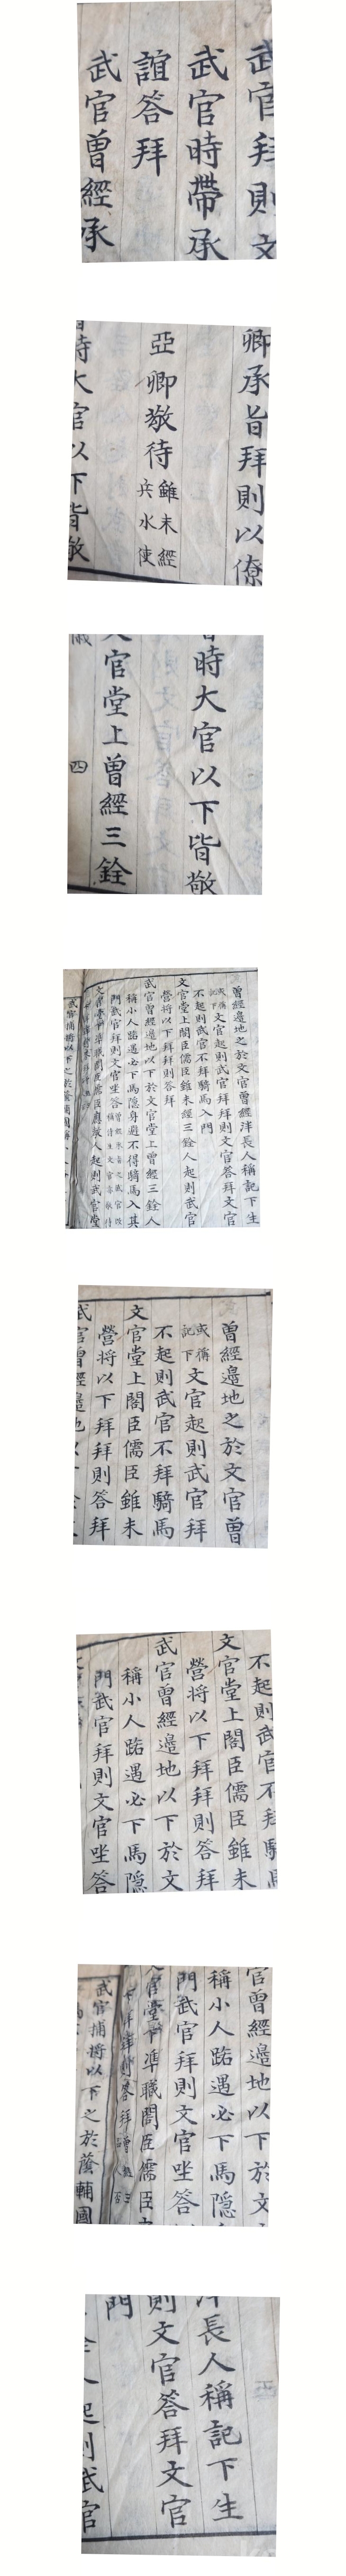 武官拜則文
武官時帶承
誼答拜
武官曾經承
卿承旨拜則以僚
亞卿敬待雖未經兵水使
時大官以下皆敬
時大官以下皆敬
官堂上曾經三銓
四
曾經邊地之於文官曾經泮長人稱記下生
或稱記下文官起則武官拜拜則文官答拜文官
不起則武官不拜騎馬入門
文官堂上閣臣儒臣雖未經三銓人起則武官
營將以下拜拜則答拜
武官曾經邊地以下於文官堂上曾經三銓人
稱小人路遇必下馬隱身避不得騎馬入其
門武官拜則文官坐答
武官捕將以下之於蔭輔國
曾經邊地之於文官曾
或稱記下文官起則武官拜
不起則武官不拜騎馬
文官堂上閣臣儒臣雖未
營將以下拜拜則答拜
武官曾經邊地以
不起則武官不拜騎馬
文官堂上閣臣儒臣雖未
營將以下拜拜則答拜
武官曾經邊地以下於文
稱小人路遇必下馬隱
門武官拜則文官坐答
官曾經邊地以下於文
稱小人路遇必下馬隱
門武官拜則文官坐答
官堂下準職閣臣儒臣
武官捕將以下之於蔭輔國
長人稱記下生
則文官答拜文官
門
人起則武官